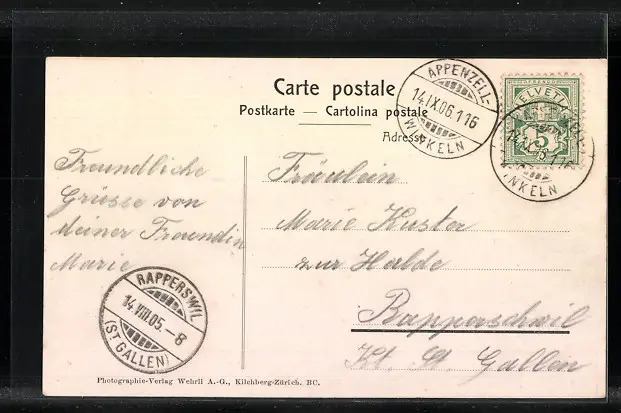 Carte postale
Postkarte — Cartolina postale
Adresse
APPENZELL-
14.IX.06.116
WINKELN
HELVETIA
5
INKELN
Freundliche
Grüsse von
deiner Freundin
Marie
Fräulein
Marie Kuster
zur Halde
Rapperschwil
Kt. St. Gallen
RAPPERSWIL
14.VIII.05.-8
(ST. GALLEN)
Photographie-Verlag Wehrli A.-G., Kilchberg-Zürich. BC.